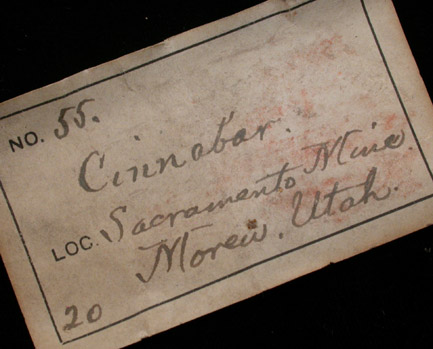 NO. 55.
Cinnabar.
LOC. Sacramento Mine.
Morcu. Utah.
20